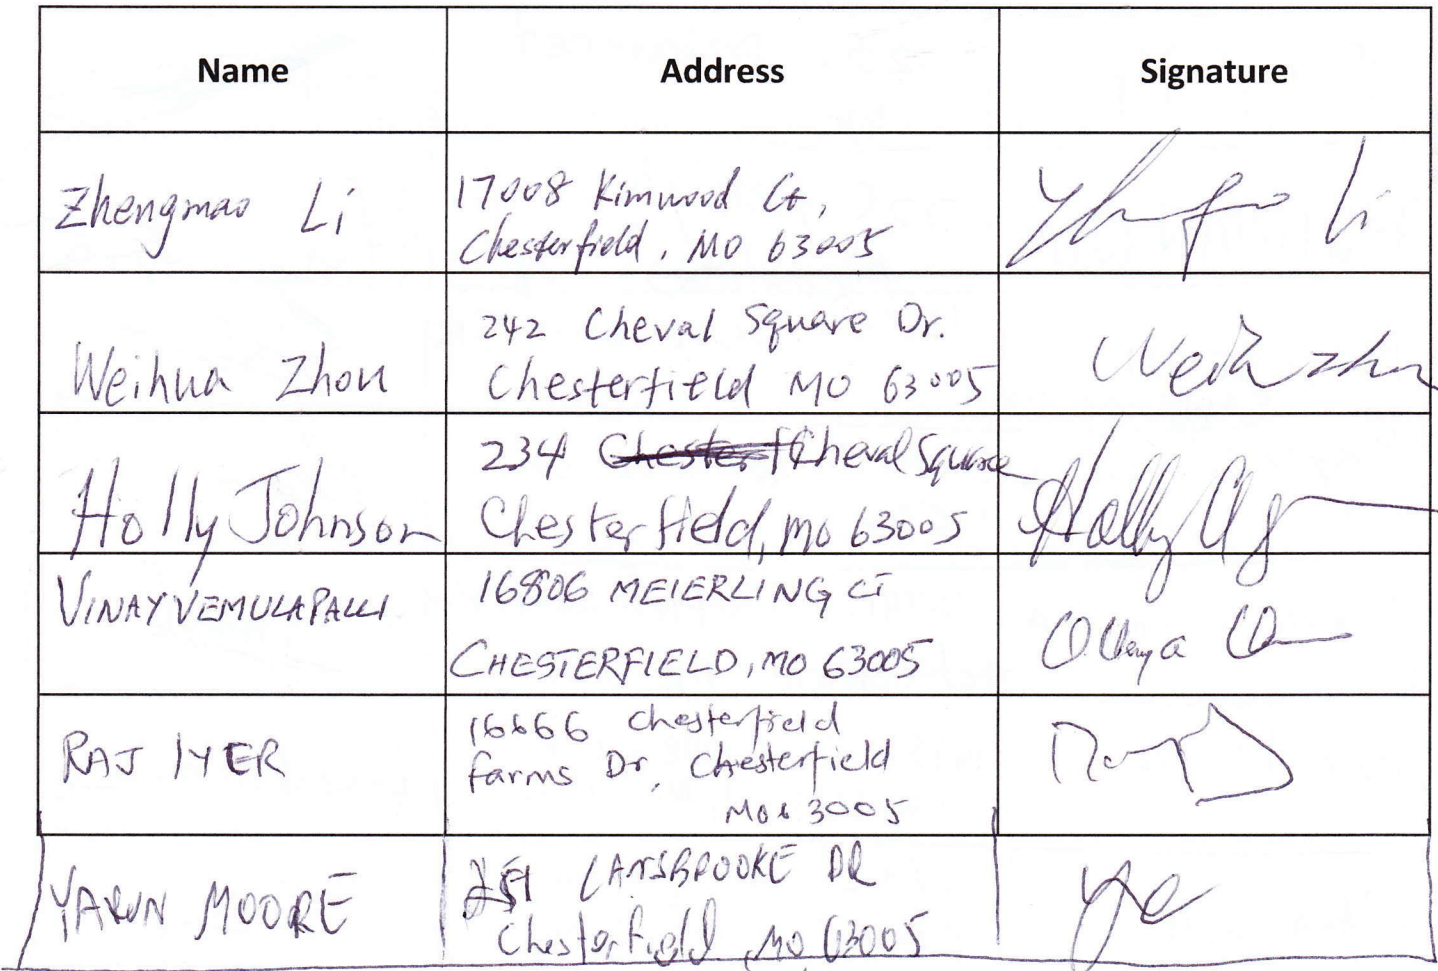 Name Address Signature
Zhengmao Li
17008 Kimwood Ct,
Chesterfield, MO 63005
Weihua Zhou
242 Cheval Square Dr.
Chesterfield MO 63005
Weihua Zhou
Holly Johnson
234 Cheval Square
Chesterfield, MO 63005
Holly
VINAY VEMULAPALLI
16806 MEIERLING CT
CHESTERFIELD, MO 63005
RAJ IYER
16666 Chesterfield
Farms Dr, Chesterfield
MO 63005
YARUN MOORE
LANSBROOKE DR
Chesterfield, MO 63005